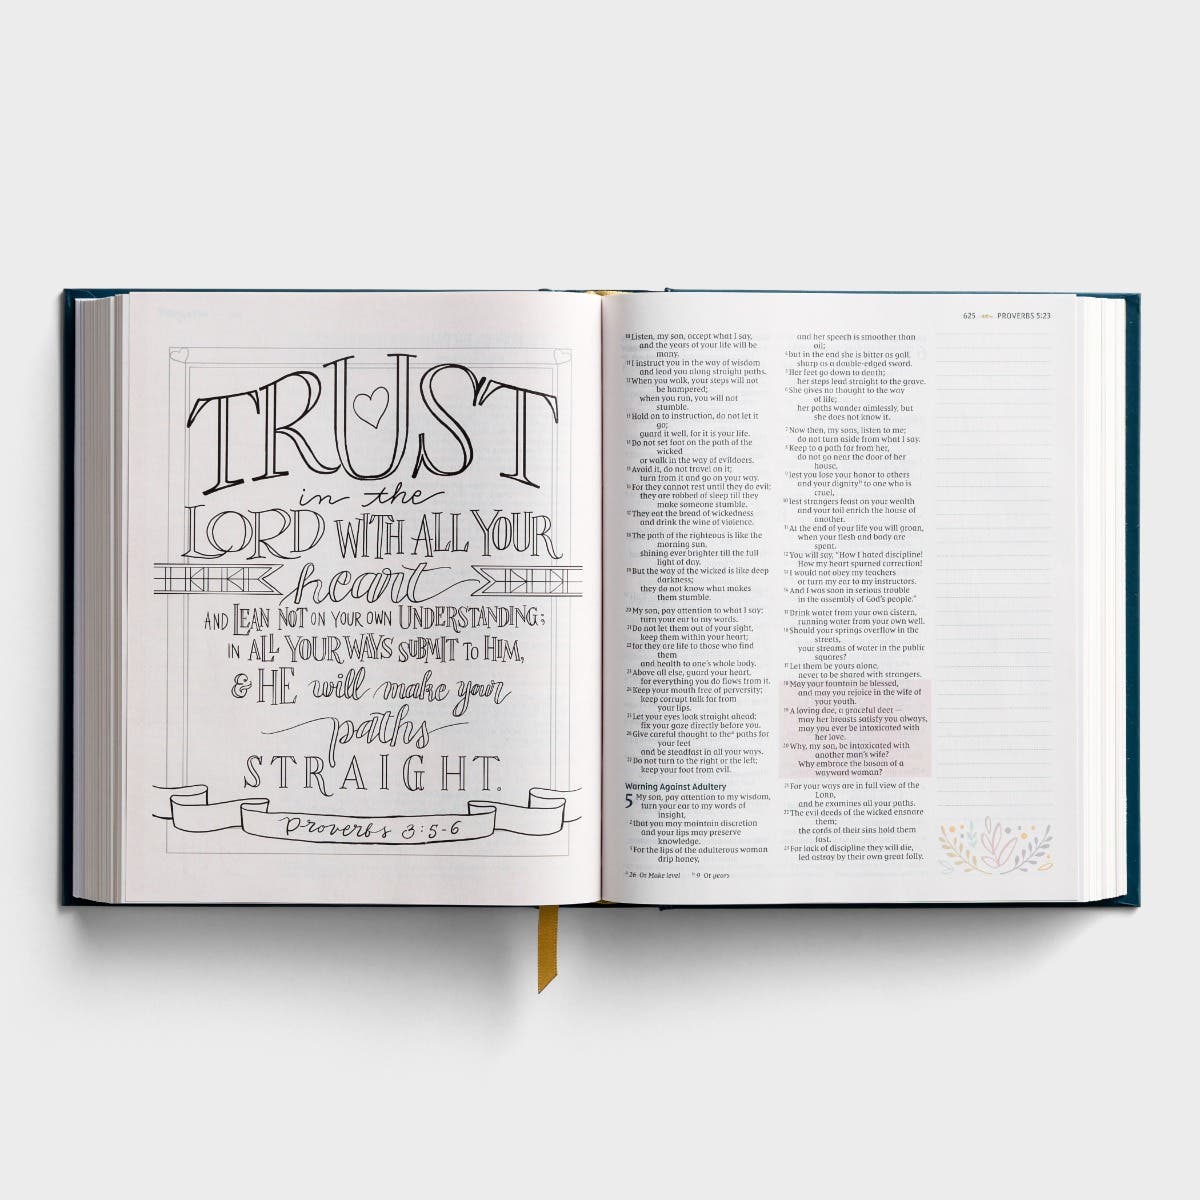 TRUST
in the
LORD WITH ALL YOUR
heart
AND LEAN NOT ON YOUR OWN UNDERSTANDING;
IN ALL YOUR WAYS SUBMIT TO HIM,
& HE will make your
paths
STRAIGHT.
Proverbs 3:5-6
625 PROVERBS 5:23
10 Listen, my son, accept what I say,
and the years of your life will be
many.
11 I instruct you in the way of wisdom
and lead you along straight paths.
12 When you walk, your steps will not
be hampered;
when you run, you will not
stumble.
13 Hold on to instruction, do not let it
go;
guard it well, for it is your life.
14 Do not set foot on the path of the
wicked
or walk in the way of evildoers.
15 Avoid it, do not travel on it;
turn from it and go on your way.
16 For they cannot rest until they do evil;
they are robbed of sleep till they
make someone stumble.
17 They eat the bread of wickedness
and drink the wine of violence.
18 The path of the righteous is like the
morning sun,
shining ever brighter till the full
light of day.
19 But the way of the wicked is like deep
darkness;
they do not know what makes
them stumble.
20 My son, pay attention to what I say;
turn your ear to my words.
21 Do not let them out of your sight,
keep them within your heart;
22 for they are life to those who find
them
and health to one's whole body.
23 Above all else, guard your heart,
for everything you do flows from it.
24 Keep your mouth free of perversity;
keep corrupt talk far from
your lips.
25 Let your eyes look straight ahead;
fix your gaze directly before you.
26 Give careful thought to the a paths for
your feet
and be steadfast in all your ways.
27 Do not turn to the right or the left;
keep your foot from evil.
Warning Against Adultery
5 My son, pay attention to my wisdom,
turn your ear to my words of
insight,
2 that you may maintain discretion
and your lips may preserve
knowledge.
3 For the lips of the adulterous woman
drip honey,
a 26 Or Make level b 9 Or years
and her speech is smoother than
oil;
4 but in the end she is bitter as gall,
sharp as a double-edged sword.
5 Her feet go down to death;
her steps lead straight to the grave.
6 She gives no thought to the way
of life;
her paths wander aimlessly, but
she does not know it.
7 Now then, my sons, listen to me;
do not turn aside from what I say.
8 Keep to a path far from her,
do not go near the door of her
house,
9 lest you lose your honor to others
and your dignity b to one who is
cruel,
10 lest strangers feast on your wealth
and your toil enrich the house of
another.
11 At the end of your life you will groan,
when your flesh and body are
spent.
12 You will say, "How I hated discipline!
How my heart spurned correction!
13 I would not obey my teachers
or turn my ear to my instructors.
14 And I was soon in serious trouble
in the assembly of God's people."
15 Drink water from your own cistern,
running water from your own well.
16 Should your springs overflow in the
streets,
your streams of water in the public
squares?
17 Let them be yours alone,
never to be shared with strangers.
18 May your fountain be blessed,
and may you rejoice in the wife of
your youth.
19 A loving doe, a graceful deer —
may her breasts satisfy you always,
may you ever be intoxicated with
her love.
20 Why, my son, be intoxicated with
another man's wife?
Why embrace the bosom of a
wayward woman?
21 For your ways are in full view of the
LORD,
and he examines all your paths.
22 The evil deeds of the wicked ensnare
them;
the cords of their sins hold them
fast.
23 For lack of discipline they will die,
led astray by their own great folly.